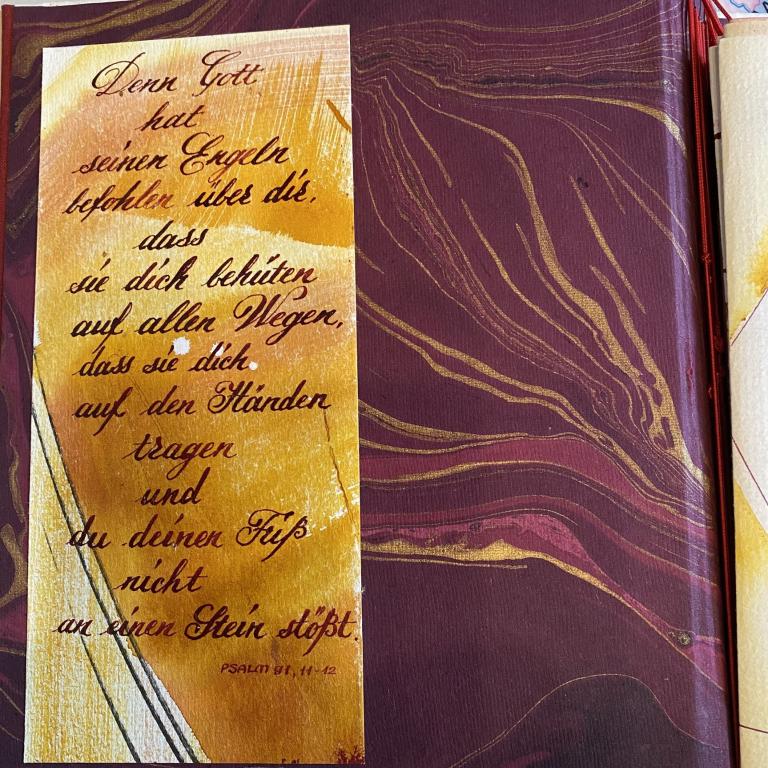 Denn Gott
hat
seinen Engeln
befohlen über dir,
dass
sie dich behüten
auf allen Wegen,
dass sie dich
auf den Händen
tragen
und
du deinen Fuß
nicht
an einen Stein stößt.
PSALM 91, 11-12